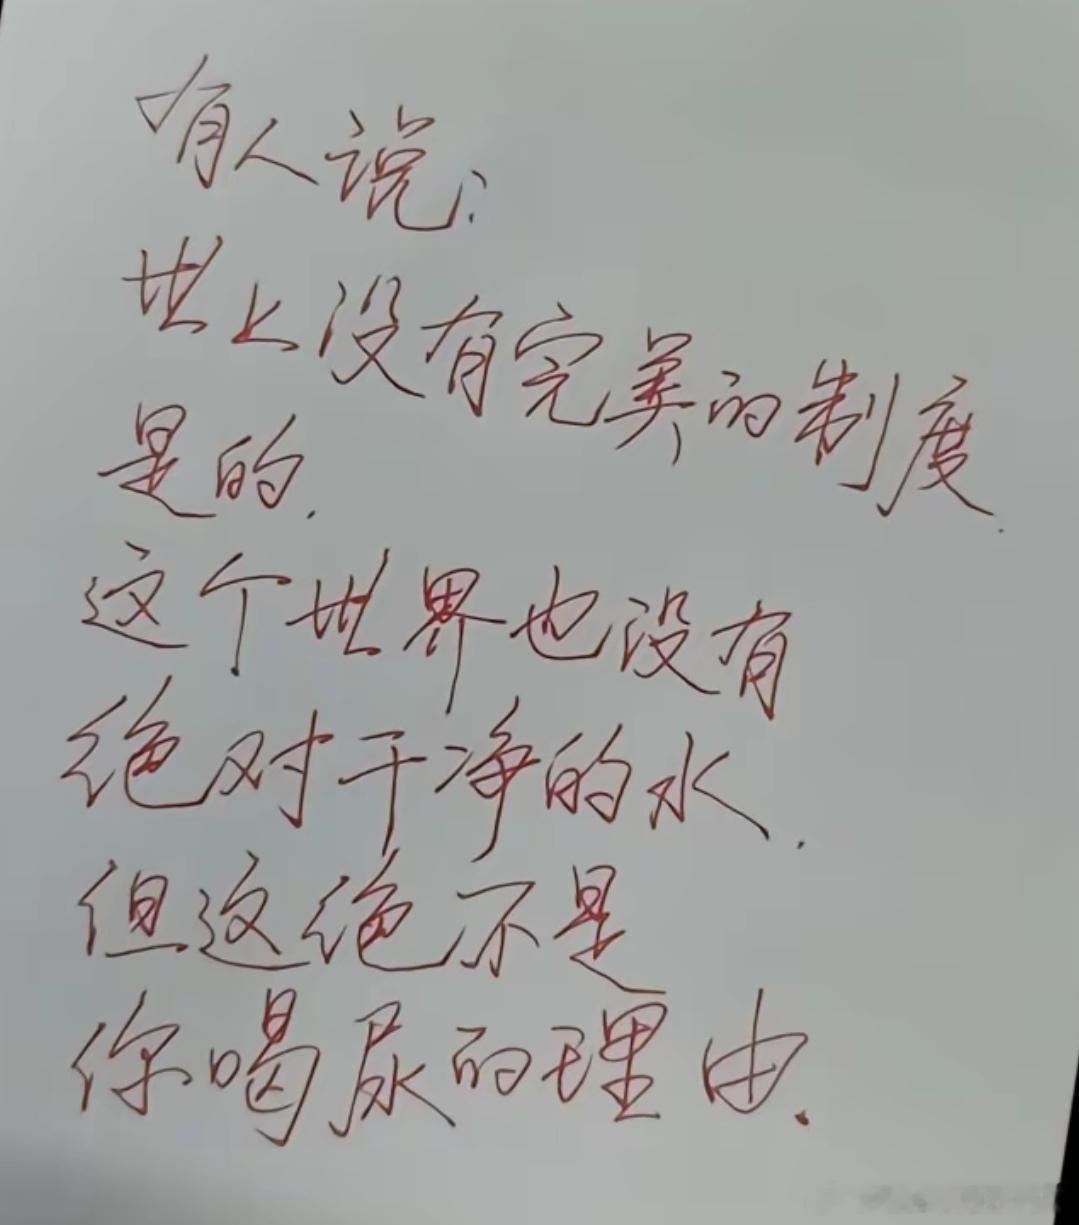 有人说:
世上没有完美的制度.
是的.
这个世界也没有
绝对干净的水.
但这绝不是
你喝尿的理由.